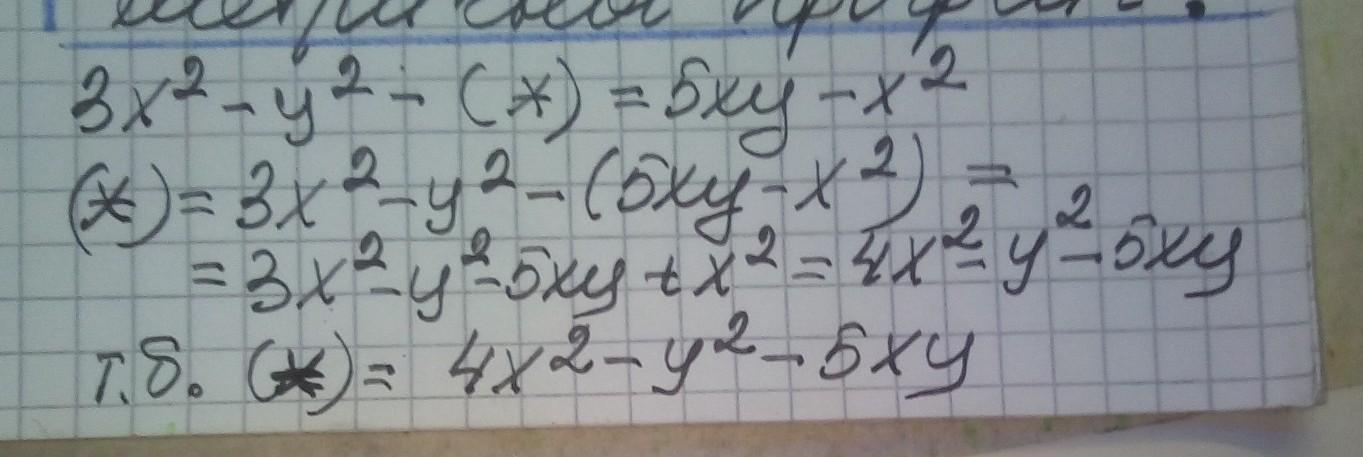 3x² - y² - (*) = 5xy - x²
(*) = 3x² - y² - (5xy - x²) =
= 3x² - y² - 5xy + x² = 4x² - y² - 5xy
т.б. (*) = 4x² - y² - 5xy